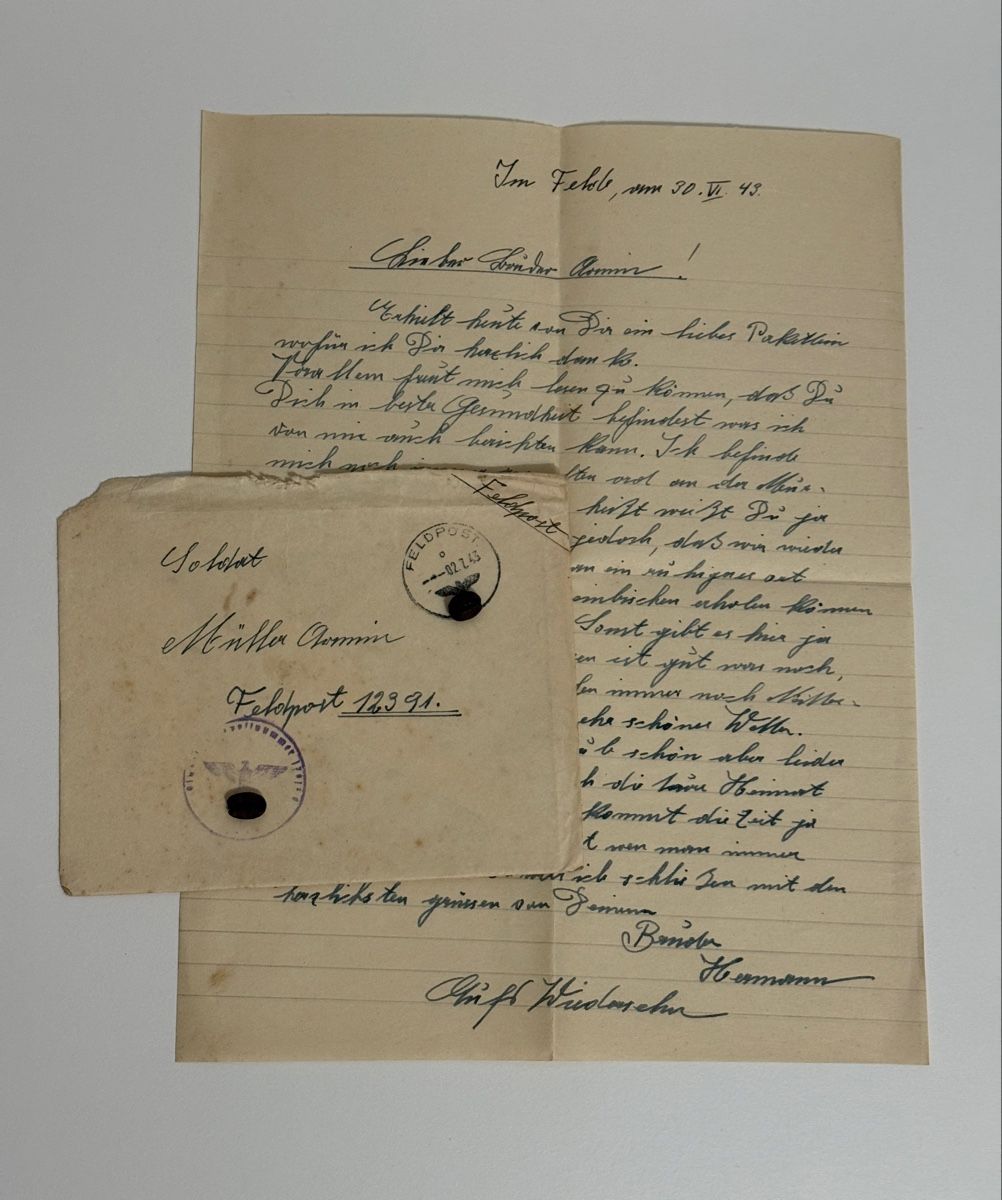 Im Felde, am 30. VI. 43.
Lieber Bruder Armin!
Erhielt heute von Dir ein liebes Paketlein
wofür ich Dir herzlich dank.
Vorallem freut mich lesen zu können, daß Du
Dich in bester Gesundheit befindest was ich
von mir auch berichten kann. Ich befinde
mich noch
an der Mius-
heißt weißt Du ja
jedoch, daß wir wieder
an ein ruhiges ort
einbischen erholen können
Sonst gibt es hier ja
ist gut was noch,
immer noch Mittel-
schönes Wetter.
schön aber leider
die Heimat
kommt die Zeit ja
wen man immer
ich schließen mit den
herzlichsten grüssen von Deinem
Bruder
Hermann
Aufs Wiedersehn
Feldpost
FELDPOST
02.7.43
Soldat
Müller Armin
Feldpost 12391.